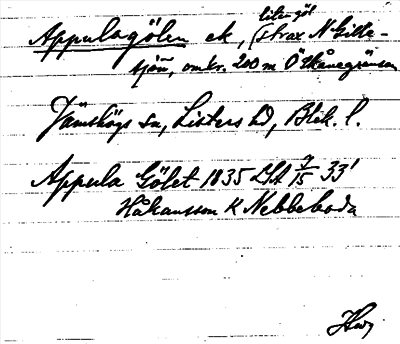 liten göl
Appulagölen ek, (strax N Gitte-
sjön, omkr. 200 m Ö Skånegränsen
Jämshögs sn, Listers hd, Blek. l.
Appula Gölet 1835 LSA 7/15 33'
Håkansson K Nebbeboda